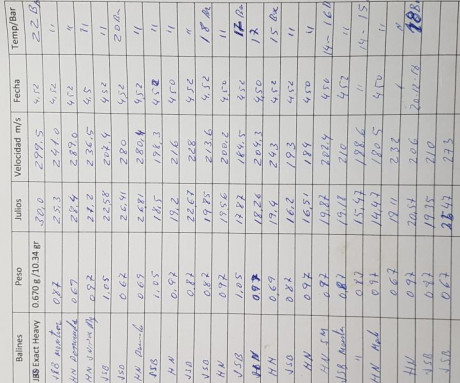 Balines Peso Julios Velocidad m/s Fecha Temp/Bar
JSB Exact Heavy 0.670 g/10.34 gr 30,0 299.5 4,52 22
JSB 0.87 25,3 241.0 4,52 "
HN 0.69 28,4 289.0 452 "
HN 27,2 236,5 4,5 "
JSB 1.05 22,58 207,4 452 "
JSD 0.67 26,41 280 4,52
HN 0.69 26,81 280,4 4,52 "
JSB 1.05 18,5 198,3 452 "
HN 0.97 19,2 216 450 "
JSD 0.87 22,67 228 452 "
JSD 0.87 19,85 213,6 452
HN 0.97 19,56 200,2 4,52 "
JSB 1.05 17,82 184,5 452
HN 0.97 18,26 204,3 4,50 17
HN 0,69 19,4 243 4,52
JSD 0.87 16,2 193 452 "
HN 0.97 16,51 184 450 "
HN SM 0.97 19,82 202,4 450 14-16B
JSB 0,87 19,18 210 452 "
" 0.87 15,47 188.6 " 14-15
HN 0.97 14,47 180,5 450 "
0.67 18,11 232 " "
HN 0.97 20,57 206 20-12-18
JSB 0.87 19,35 210
JSB 0.67 25,47 273